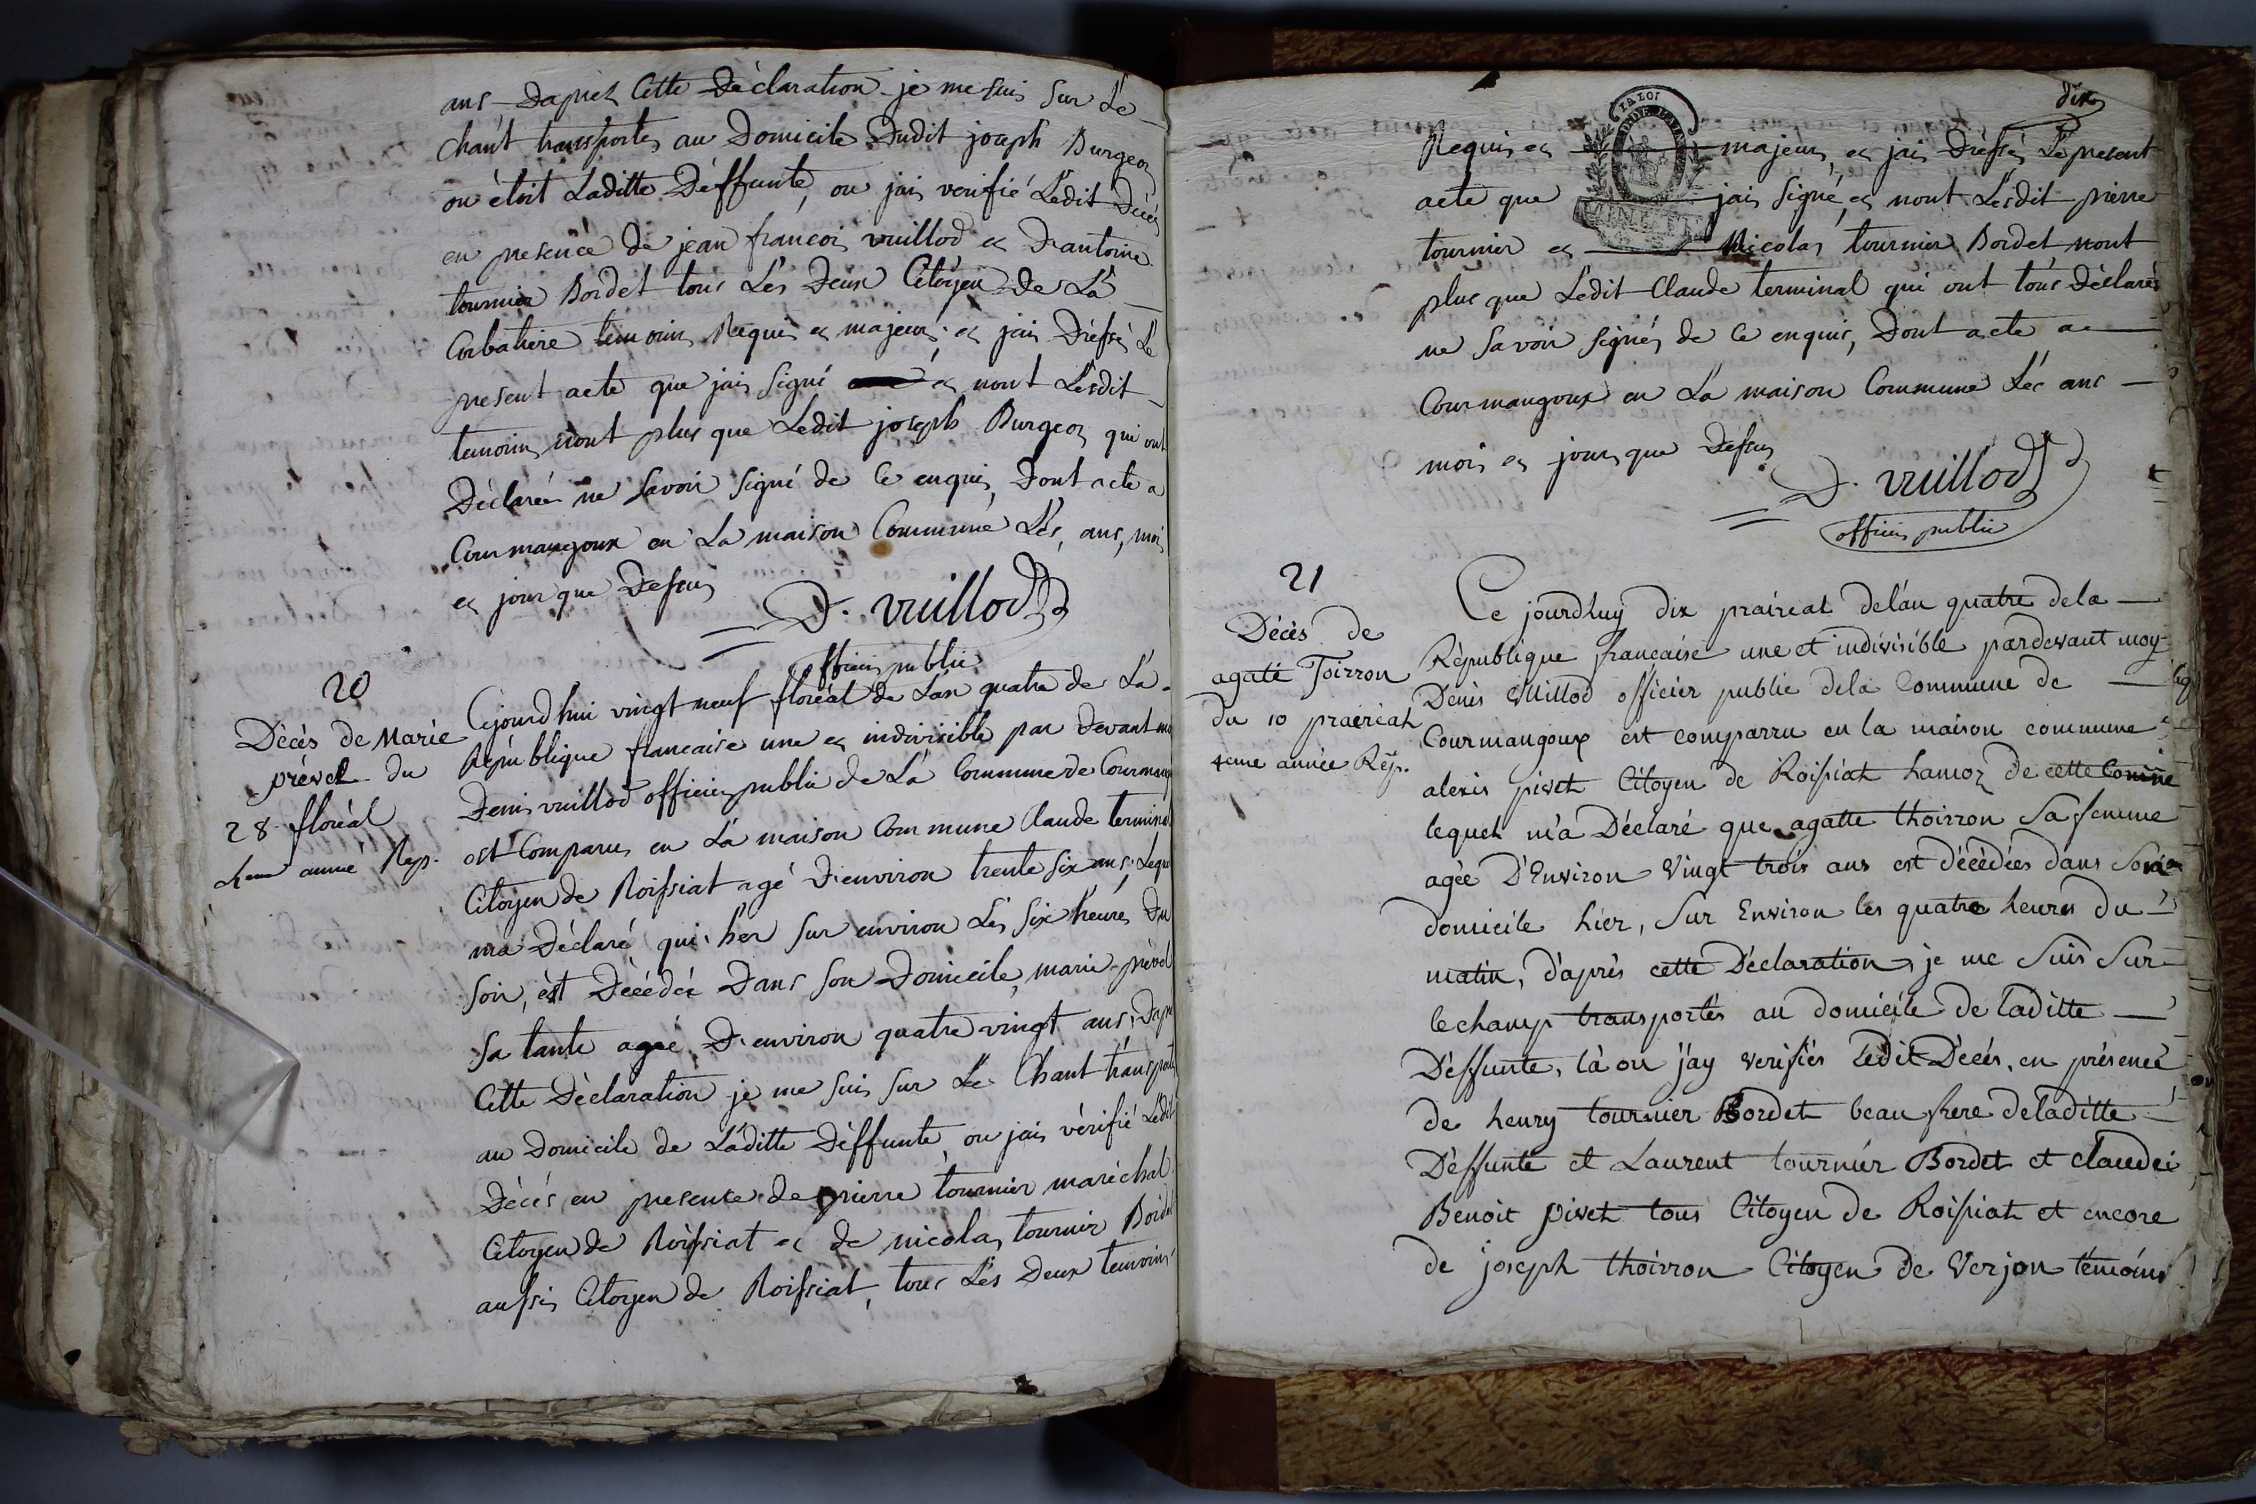 ans Daprez Cette Déclaration je me suis sur Le
chant transportés au Domicile Dudit joseph Burgeoz
ou étoit Laditte Déffunte, ou jais verifié Ledit Décés
en presence de jean francois vuillod et Dantoine
tournier Bordet tous Les Deux Citoyen De La
Corbatiere temoins Requis et majeurs et jais Dréssés Le
present acte que jais signé et nont Lesdit
temoins nont plus que Ledit joseph Burgeoz qui ont
Déclarés ne savoir signé de Ce enquis, Dont acte a
Courmangoux en La maison Commune Lés, ans, mois
et jour que Dessus
D. vuillod
officier public
20
Décès de Marie
prévet du
28 floréal
4eme année Rep.
Cejourdhui vingt neuf floréal de Lan quatre de La
République francaise une et indivisible par Devant moi
Denis vuillod officier public de La Commune de Courmang
est Comparus en La maison Commune Claude terminal
Citoyen de Roissiat agé D'environ trente six ans, Lequel
ma Déclaré qui her sur environ Lés six heures Du
soir, èst Décédée Dans son Domicile, marie prévet
sa tante agée D'environ quatre vingt ans, Dapre
Cette Déclaration je me suis sur Le Chant transporté
au Domicile de Laditte Déffunte, ou jais vérifié Ledit
Décés en presence de pierre tournier maréchal
Citoyen de Roissiat et de nicolas tournier Bordet
aussis Citoyen de Roissiat, tous Lés Deux temoins
dix
LA LOI
Requis et majeurs, et jais Dréssés Le present
acte que jais signé, et nont Lesdit pierre
tournier et Nicolas tournier Bordet nont
plus que Ledit Claude terminal qui ont tous déclarés
ne savoir signés de Ce enquis, Dont acte a
Courmangoux en La maison Commune Lés ans
mois et jours que Dessus
D. vuillod
officier public
21
Décès de
agate Toirron
du 10 prairéal
4eme année Rép.
Ce jourdhuy dix prairéal delan quatre dela
République francaise une et indivisible pardevant moy
Denis Vuillod officier public dela Commune de
Courmangoux est comparru en la maison commune
alexis pivet Citoyen de Roissiat hamoz de cette Comune
lequel m'a Déclaré que agatte thoirron Sa femme
agée D'Environ Vingt trois ans est décédées dans Son
domicile hier, Sur Environ les quatre heures du
matin, d'après cette Déclaration, je me Suis Sur
lechamp transportés au domicile de laditte
Déffunte, là ou j'ay verifiés ledit Décés, en présence
de henry tournier Bordet beau frere deladitte
Déffunte et Laurent tournier Bordet et claude
Benoit pivet tous Citoyen de Roissiat et encore
de joseph thoirron Citoyen de Verjon témoins